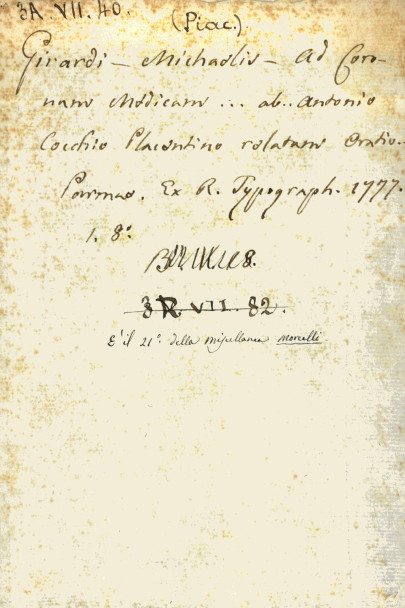 3A. VII. 40.
(Piac.)
Girardi – Michaelis – Ad Coro-
nam Medicam ... ab.. Antonio
Cocchio Placentino relatam Oratio..
Parmae. Ex R. Typograph. 1777.
1. 8.°
3R. VII. 82.
E' il 21°. della miscellanea Morcelli